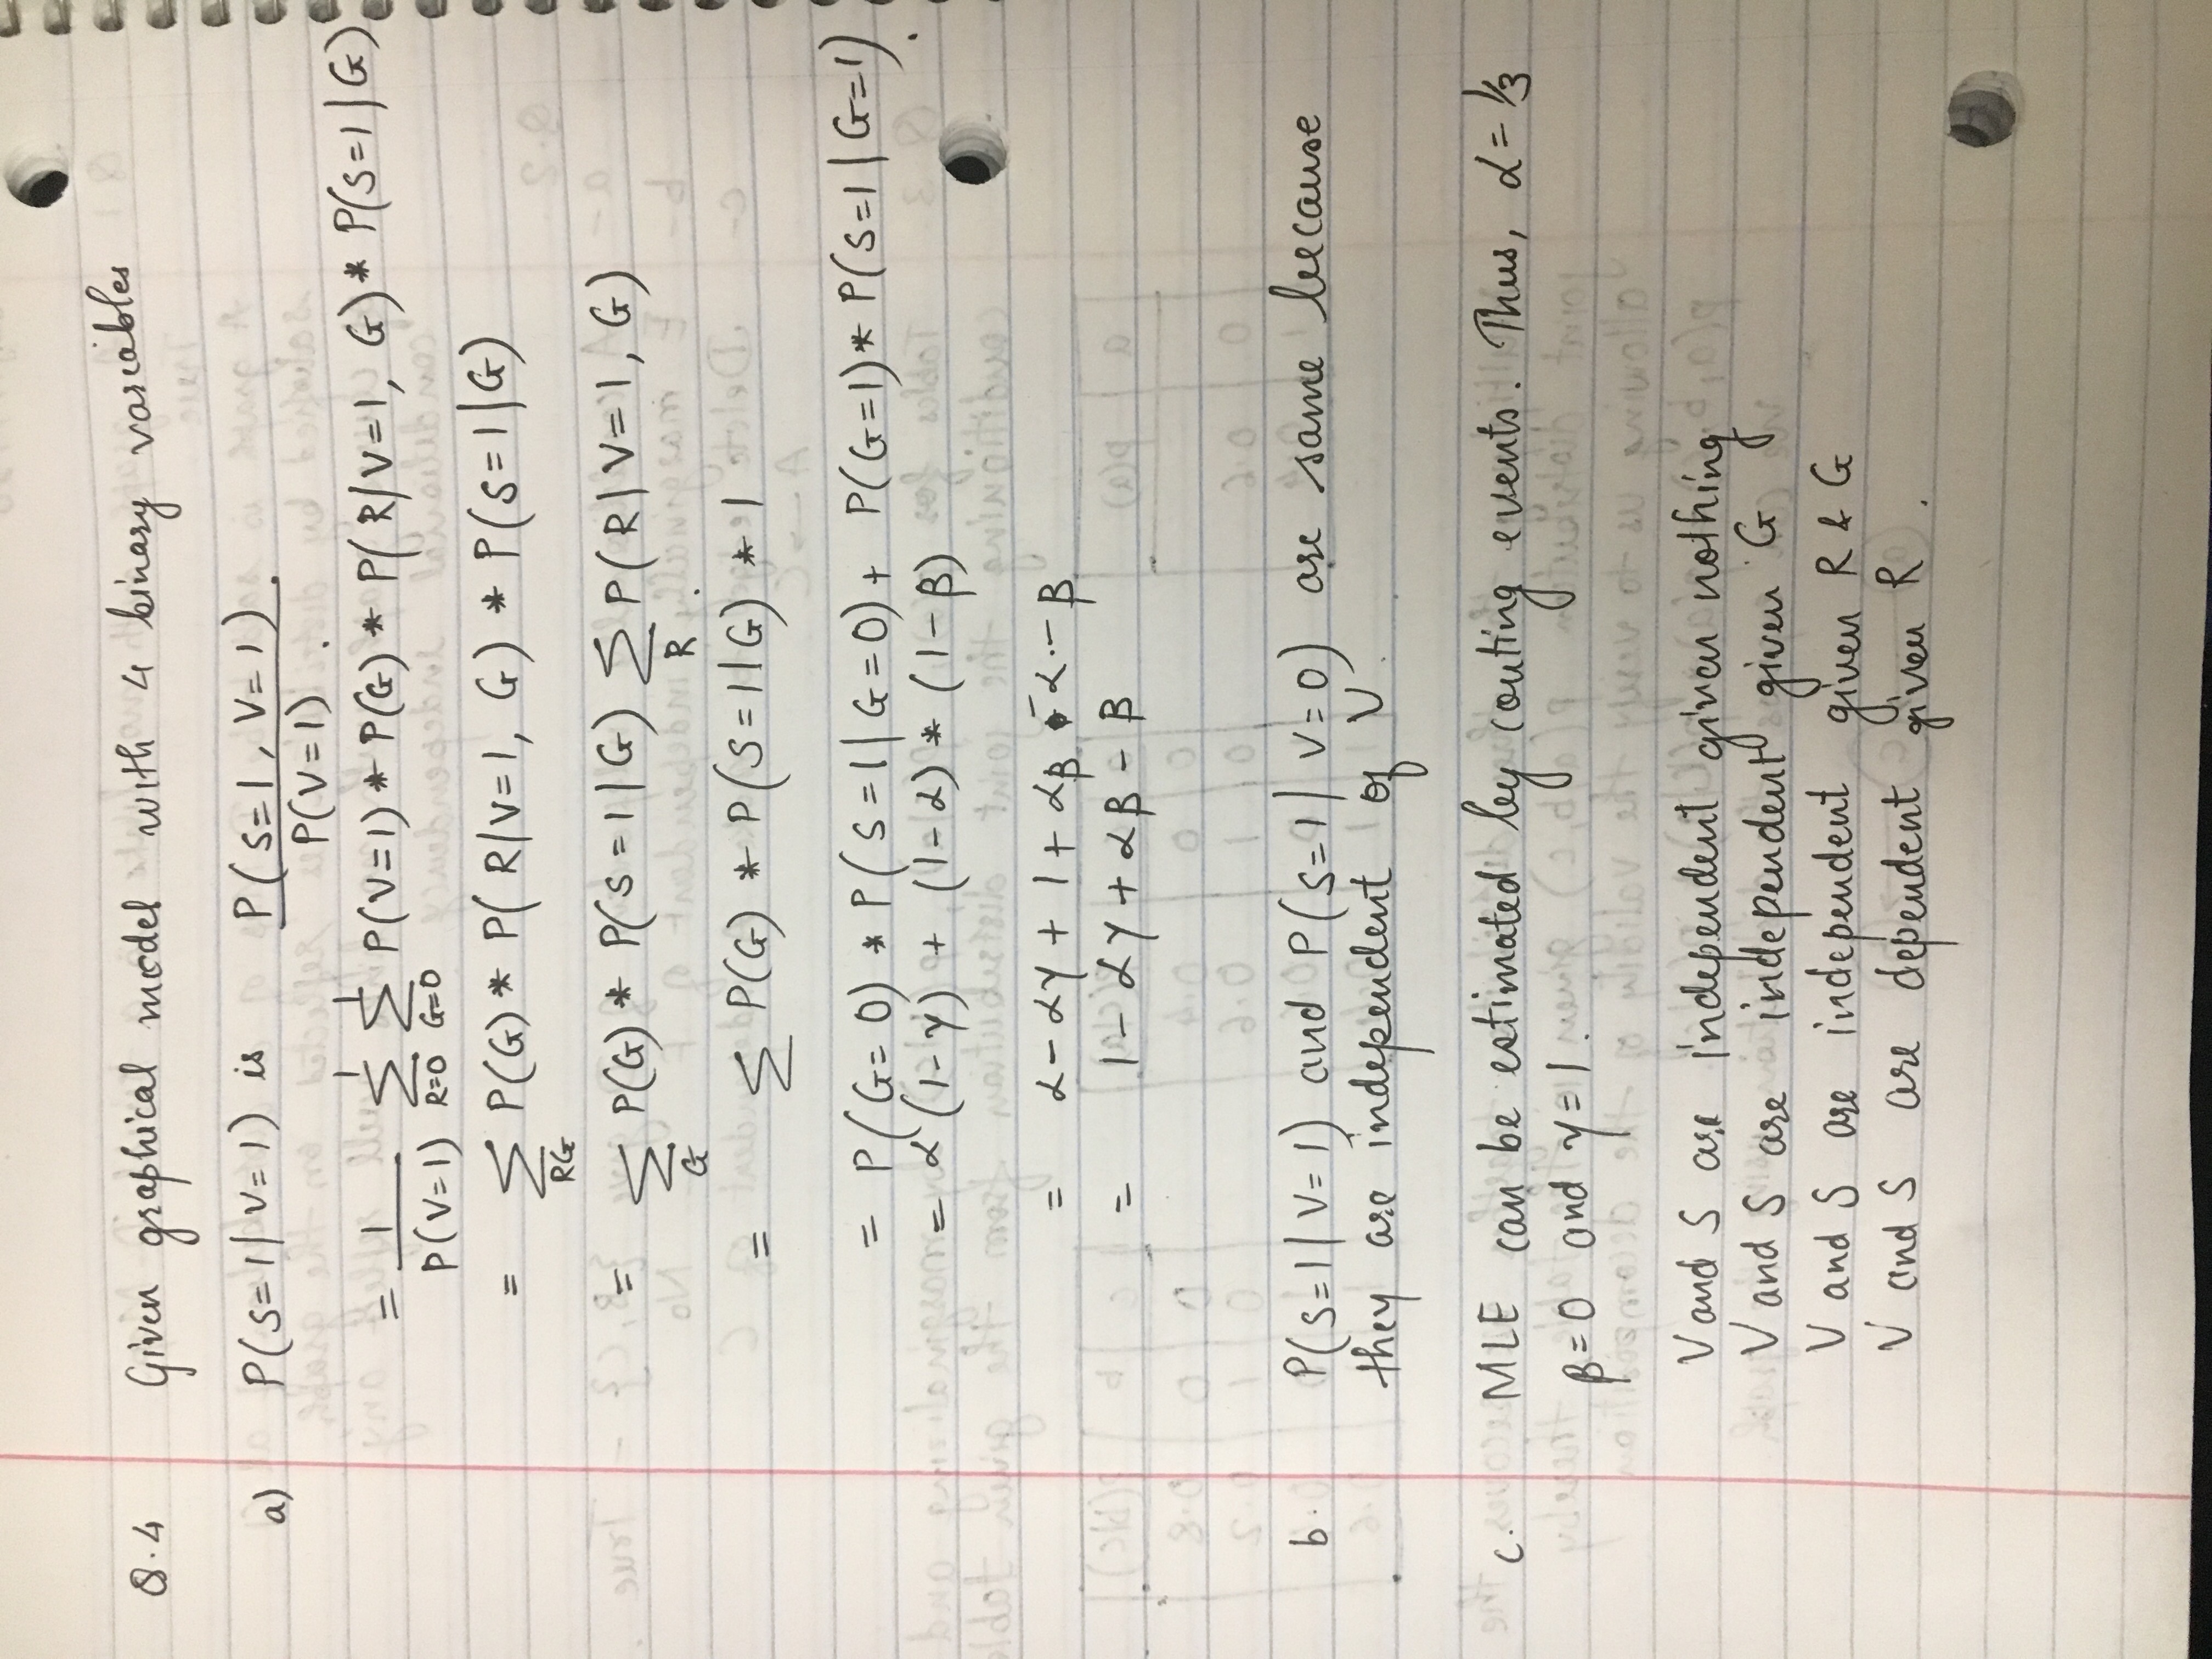 Q.4 Given graphical model with 4 binary variables
a) P(S=1|V=1) is P(S=1, V=1).
P(V=1).
= 1/P(V=1) 1∑R=0 1∑G=0 P(V=1) * P(G) * P(R|V=1, G) * P(S=1|G)
= ∑RG P(G) * P(R|V=1, G) * P(S=1|G)
= ∑G P(G) * P(S=1|G) ∑R P(R|V=1, G)
= ∑ P(G) * P(S=1|G) * 1
= P(G=0) * P(S=1|G=0) + P(G=1) * P(S=1|G=1).
= α(1-γ) + (1-α) * (1-β)
= α-αγ + 1 + αβ -α - β
= 1 - αγ + αβ - β
b. P(S=1|V=1) and P(S=1|V=0) are same because
they are independent of V.
c. MLE can be estimated by couting events. Thus, α=1/3
β=0 and γ=1.
V and S are independent given nothing
V and S are independent given G
V and S are independent given R & G
V and S are dependent given R.